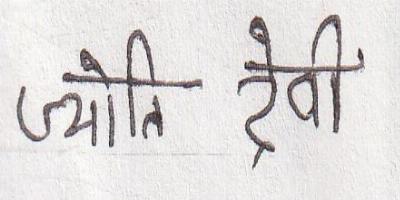 ज्योति देवी